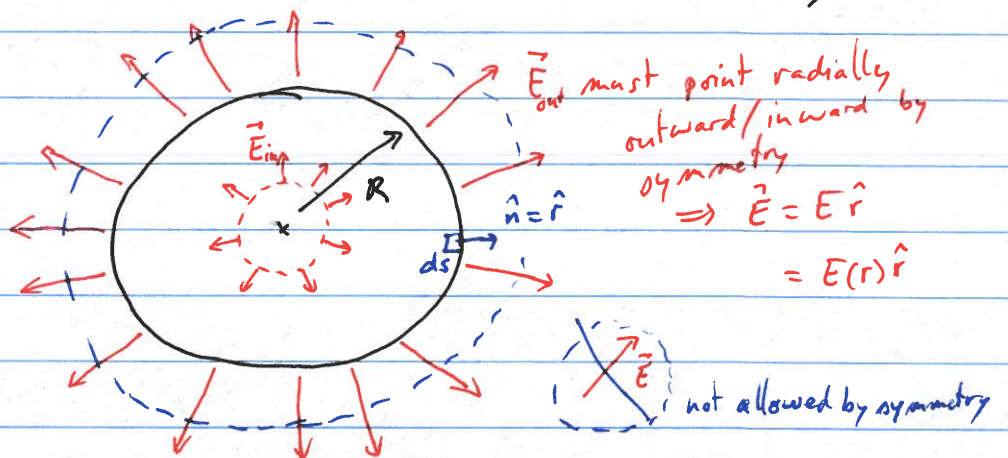 E⃗out must point radially
outward/inward by
symmetry
⇒ E⃗ = E r̂
= E(r) r̂
E⃗in
R
n̂ = r̂
ds
E⃗
not allowed by symmetry